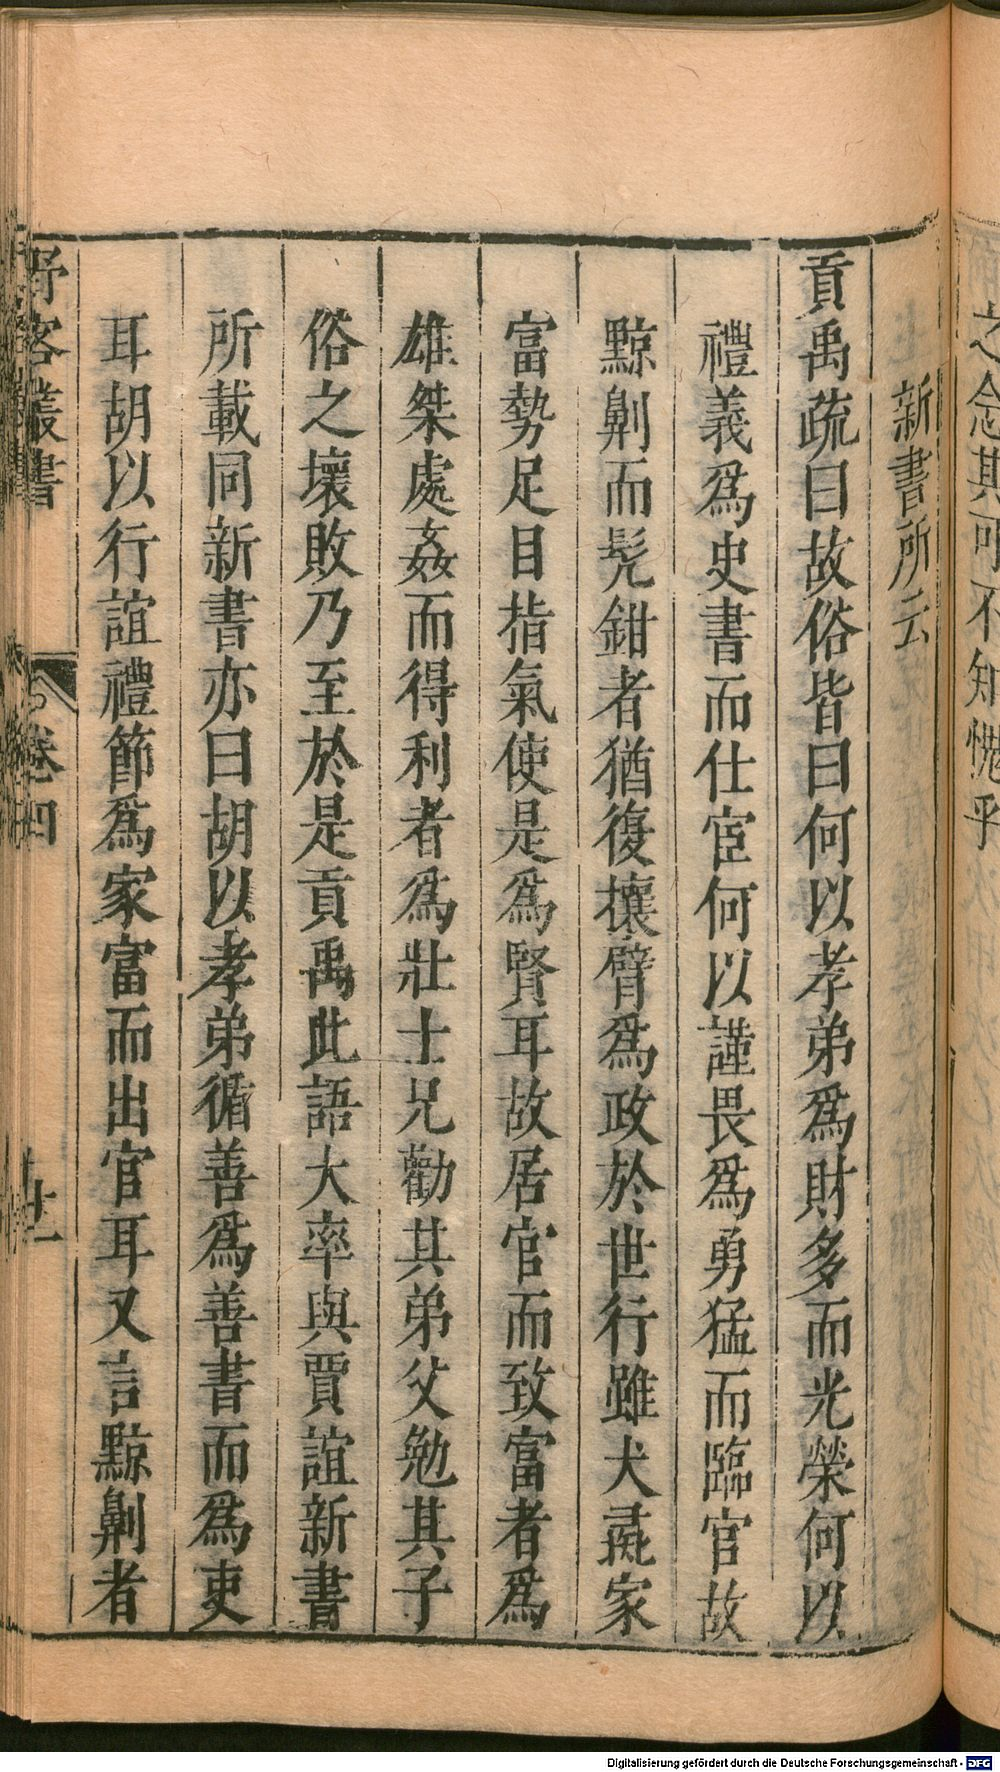 之念其可不知愧乎
新書所云
貢禹疏曰故俗皆曰何以孝弟爲財多而光榮何以
禮義爲史書而仕宦何以謹畏爲勇猛而臨官故
黥劓而髡鉗者猶復攘臂爲政於世行雖犬彘家
富勢足目指氣使是爲賢耳故居官而致富者爲
雄桀處姦而得利者爲壯士兄勸其弟父勉其子
俗之壞敗乃至於是貢禹此語大率與賈誼新書
所載同新書亦曰胡以孝弟循善爲善書而爲吏
耳胡以行誼禮節爲家富而出官耳又言黥劓者
野客叢書 卷四 廿一
Digitalisierung gefördert durch die Deutsche Forschungsgemeinschaft - DFG